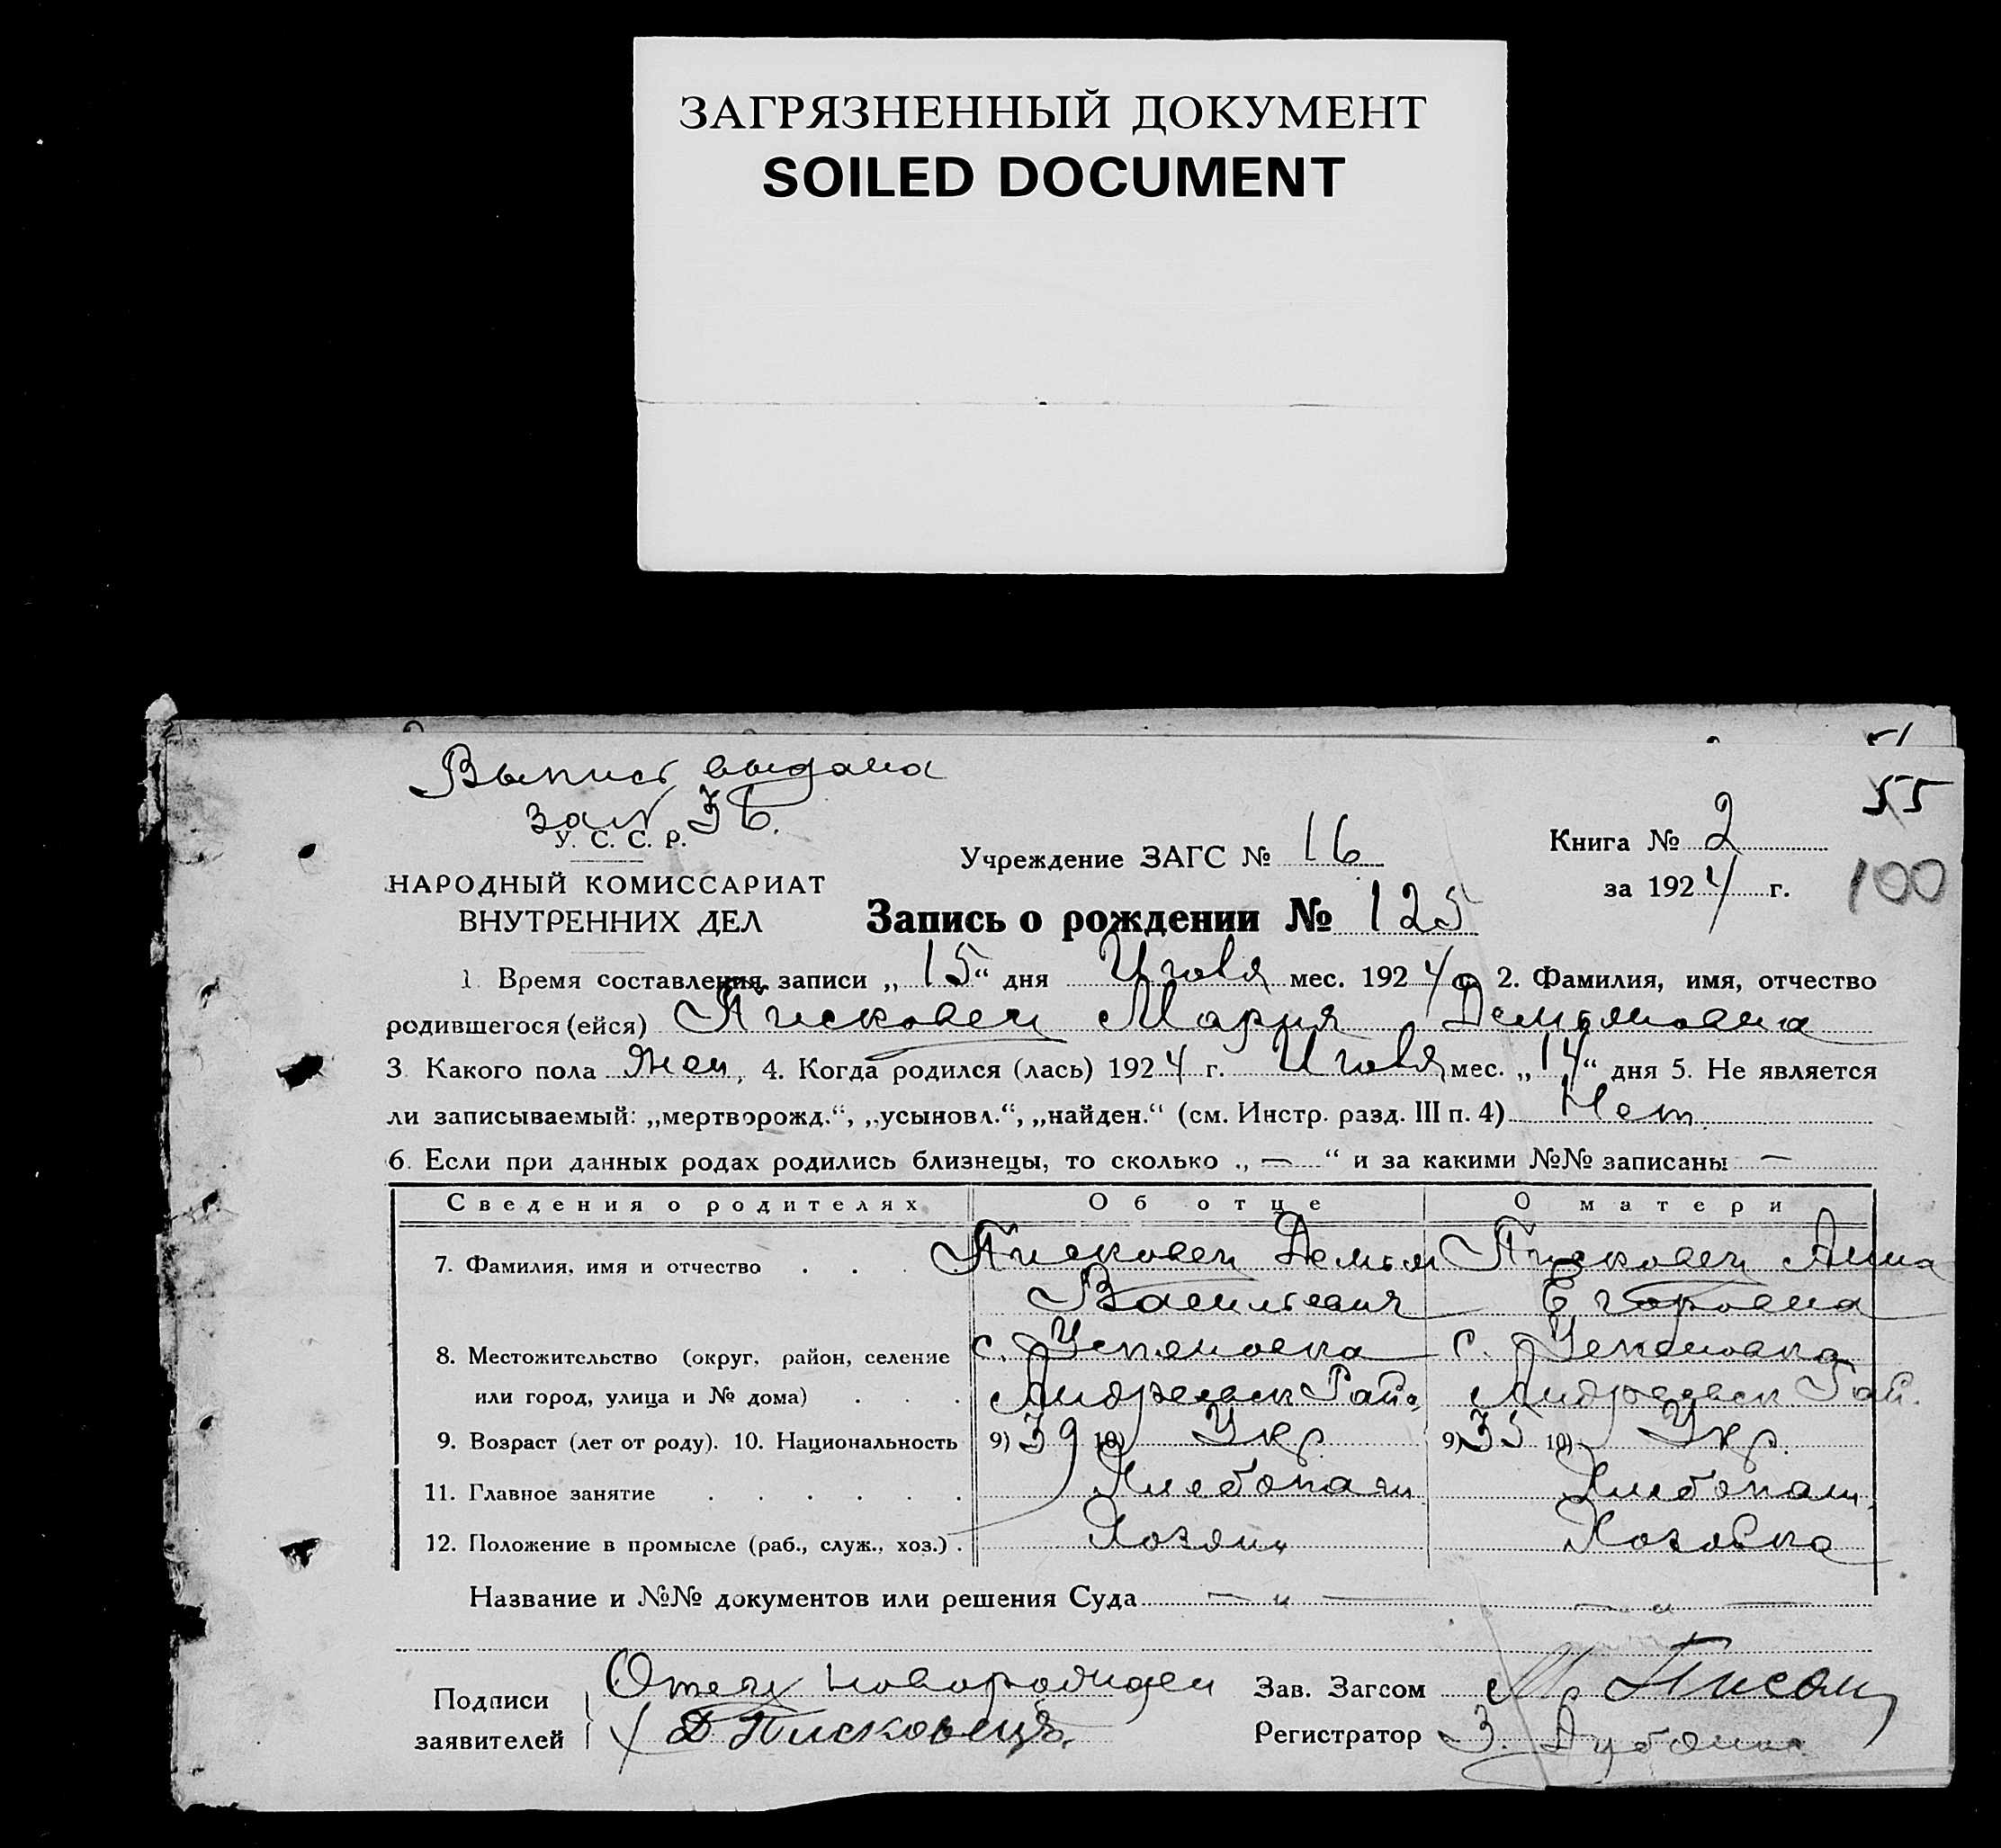 ЗАГРЯЗНЕННЫЙ ДОКУМЕНТ
SOILED DOCUMENT
51
Выпись выдана
55
за №
У. С. С. Р.
Учреждение ЗАГС № 16
Книга № 2
НАРОДНЫЙ КОМИССАРИАТ
за 1924 г.
100
ВНУТРЕННИХ ДЕЛ
Запись о рождении № 125
1. Время составления записи „15“ дня Июля мес. 1924 г. 2. Фамилия, имя, отчество
родившегося (ейся) Писковец Мария Демьяновна
3. Какого пола жен, 4. Когда родился (лась) 1924 г. Июля мес. „14“ дня 5. Не является
ли записываемый: „мертворожд.“, „усыновл.“, „найден.“ (см. Инстр. разд. III п. 4) Нет
6. Если при данных родах родились близнецы, то сколько „ — “ и за какими №№ записаны —
Сведения о родителях Об отце О матери
7. Фамилия, имя и отчество . . . Писковец Демьян Писковец Анна
Васильевич Егоровна
8. Местожительство (округ, район, селение с. Успеновка с. Успеновка
или город, улица и № дома) . . . Андреевск Рай. Андреевск Рай.
9. Возраст (лет от роду). 10. Национальность 9) 39 10) Укр. 9) 35 10) Укр.
11. Главное занятие . . . . . . Хлебопаш. Хлебопаш.
12. Положение в промысле (раб., служ., хоз.) . Хозяин Хозяйка
Название и №№ документов или решения Суда — „ — — „ —
Подписи
заявителей
Отец новорожден
Д Писковецъ
Зав. Загсом
Регистратор З.